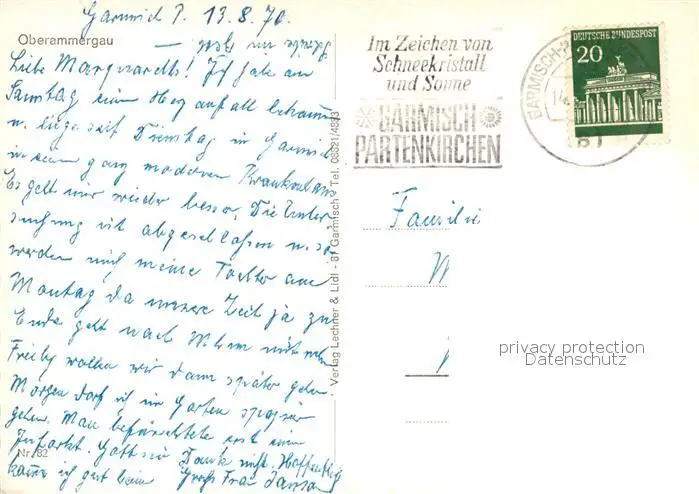 Garmisch P. 13.8.70.
Oberammergau
Liebe Marquardts! Ich habe am
Samstag einen Herzanfall bekommen
u. liege seit Dienstag in Garmisch
in einem ganz modernen Krankenhaus
Es geht mir wieder besser. Die Unter
suchung ist abgeschlossen u. so
werden mich meine Tochter am
Montag da unsere Zeit ja zu
Ende geht nach
Freibg wollen wir dann später gehen.
Morgen darf ich im Garten spazier
gehen. Man befürchtete erst einen
Infarkt. Gott sei Dank nicht. Hoffentlich
komme ich gut heim Gruß Frau
Nr. 82
Verlag Lechner & Lidl - 81 Garmisch - Tel. 08821/4833
Im Zeichen von
Schneekristall
und Sonne
GARMISCH
PARTENKIRCHEN
GARMISCH-P
DEUTSCHE BUNDESPOST
20
Familie
privacy protection
Datenschutz